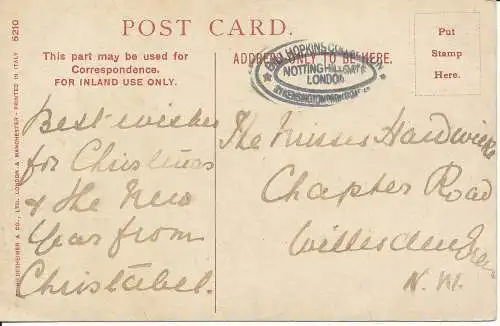 POST CARD.
This part may be used for
Correspondence.
FOR INLAND USE ONLY.
ADDRESS ONLY TO BE HERE.
Put
Stamp
Here.
HOPKINS
NOTTING HILL GATE
LONDON
KENSINGTON
5210
& CO., LTD. LONDON & MANCHESTER - PRINTED IN ITALY
Best wishes
for Christmas
& the New
Year from
Christabel.
The Misses Hardwicke
Chapter Road
Willesden Green
N.W.